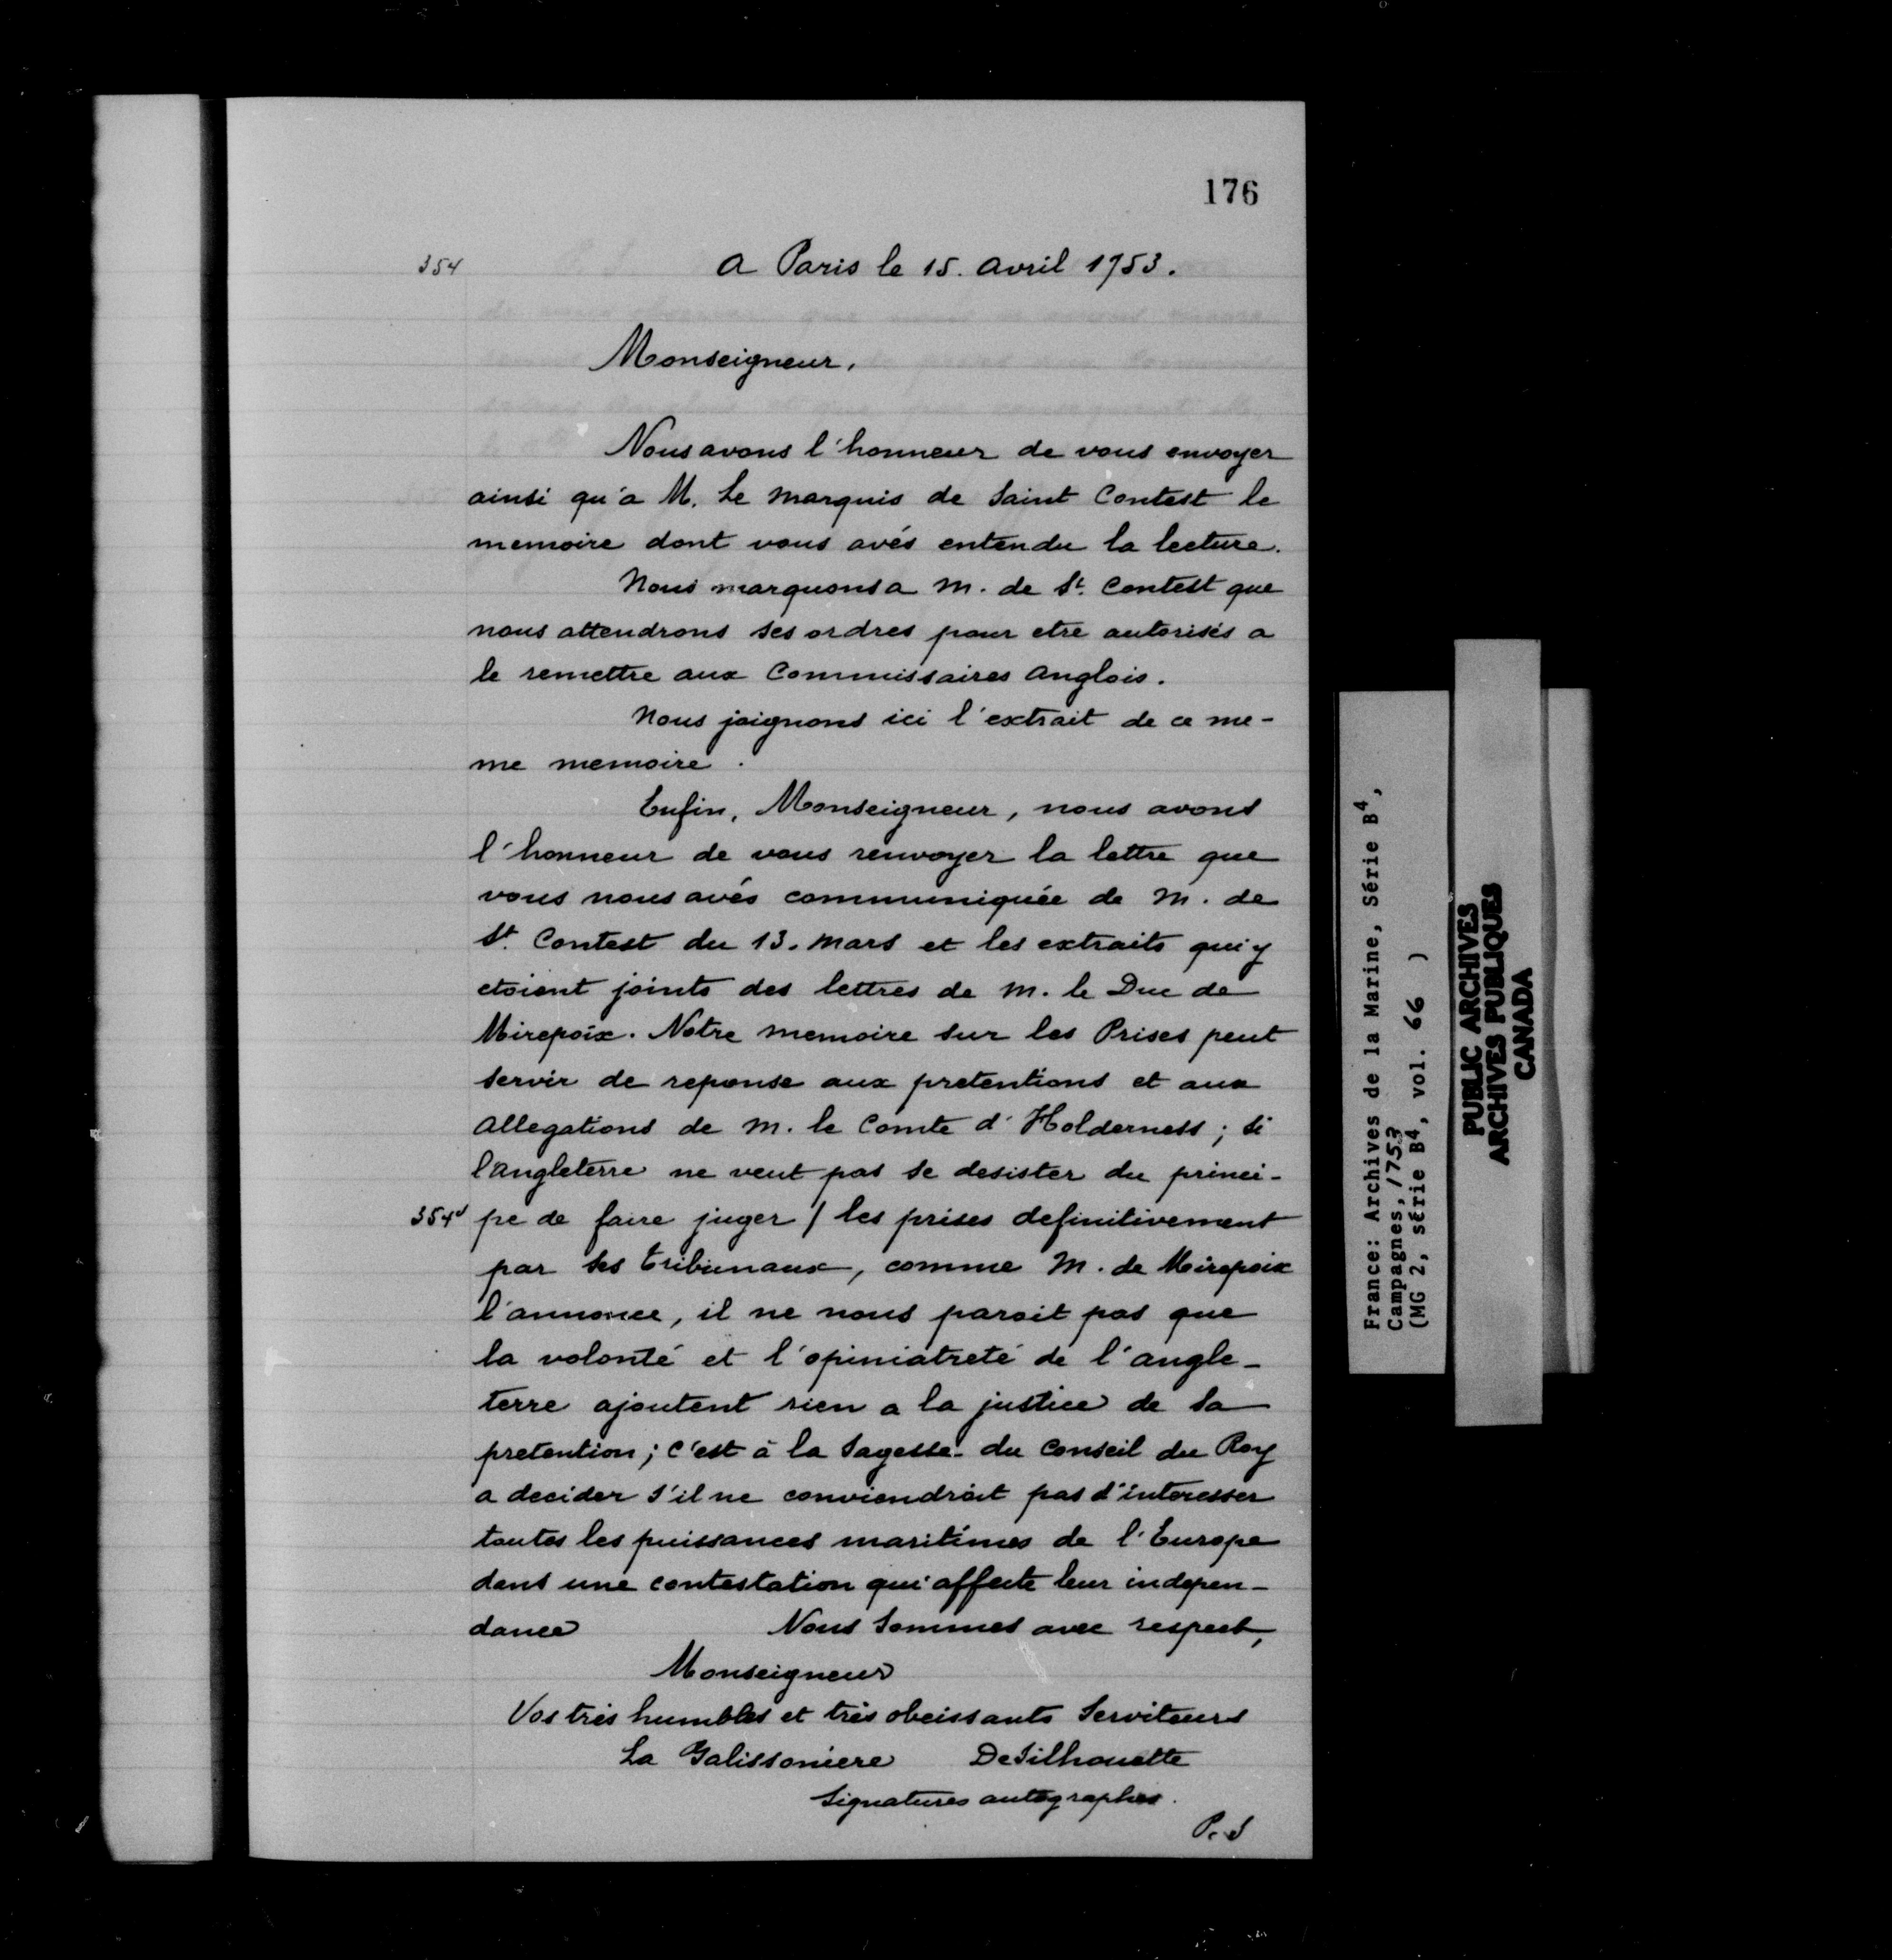 176
354
a Paris le 15. avril 1753.
Monseigneur,
Nous avons l'honneur de vous envoyer
ainsi qu'a M. Le marquis de Saint Contest le
memoire dont vous avés entendu la lecture.
Nous marquons a m. de St. Contest que
nous attendrons ses ordres pour etre autorisés a
le remettre aux Commissaires anglois.
Nous joignons ici l'extrait de ce me-
me memoire.
Enfin, Monseigneur, nous avons
l'honneur de vous renvoyer la lettre que
vous nous avés communiquée de M. de
St. Contest du 13. mars et les extraits qui y
etoient joints des lettres de M. le Duc de
Mirepoix. Notre memoire sur les Prises peut
servir de reponse aux pretentions et aux
allegations de M. le Comte d'Holderness; si
l'angleterre ne veut pas se desister du princi-
354v pe de faire juger / les prises definitivement
par ses tribunaux, comme M. de Mirepoix
l'annonce, il ne nous paroit pas que
la volonté et l'opiniatreté de l'angle-
terre ajoutent rien a la justice de sa
pretention; c'est à la Sagesse du Conseil du Roy
a decider s'il ne conviendroit pas d'interesser
toutes les puissances maritimes de l'Europe
dans une contestation qui affecte leur indepen-
dance Nous sommes avec respect,
Monseigneur
Vos très humbles et très obeissants Serviteurs
La Galissoniere DeSilhouette
Signatures autographes.
P.S
France: Archives de la Marine, Série B4,
Campagnes, 1753
(MG 2, série B4, vol. 66 )
PUBLIC ARCHIVES
ARCHIVES PUBLIQUES
CANADA